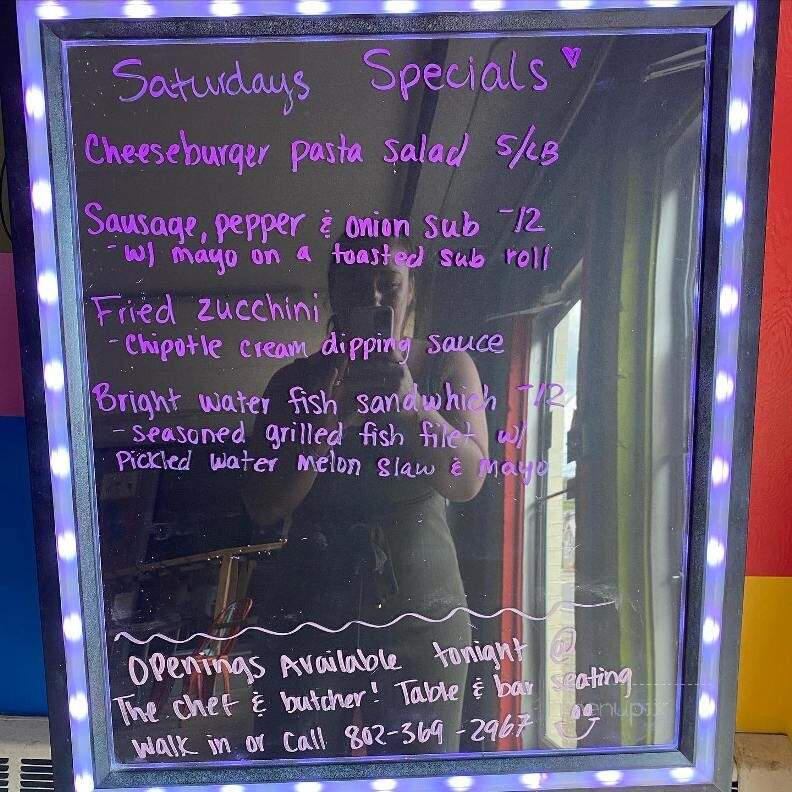 Saturdays Specials
Cheeseburger pasta salad 5/LB
Sausage, pepper & onion sub -12
-w/ mayo on a toasted sub roll
Fried zucchini
-Chipotle cream dipping sauce
Bright water fish sandwhich -12
-seasoned grilled fish filet w/
Pickled water melon slaw & mayo
Openings Available tonight @
The chef & butcher! Table & bar seating
Walk in or call 802-369-2967